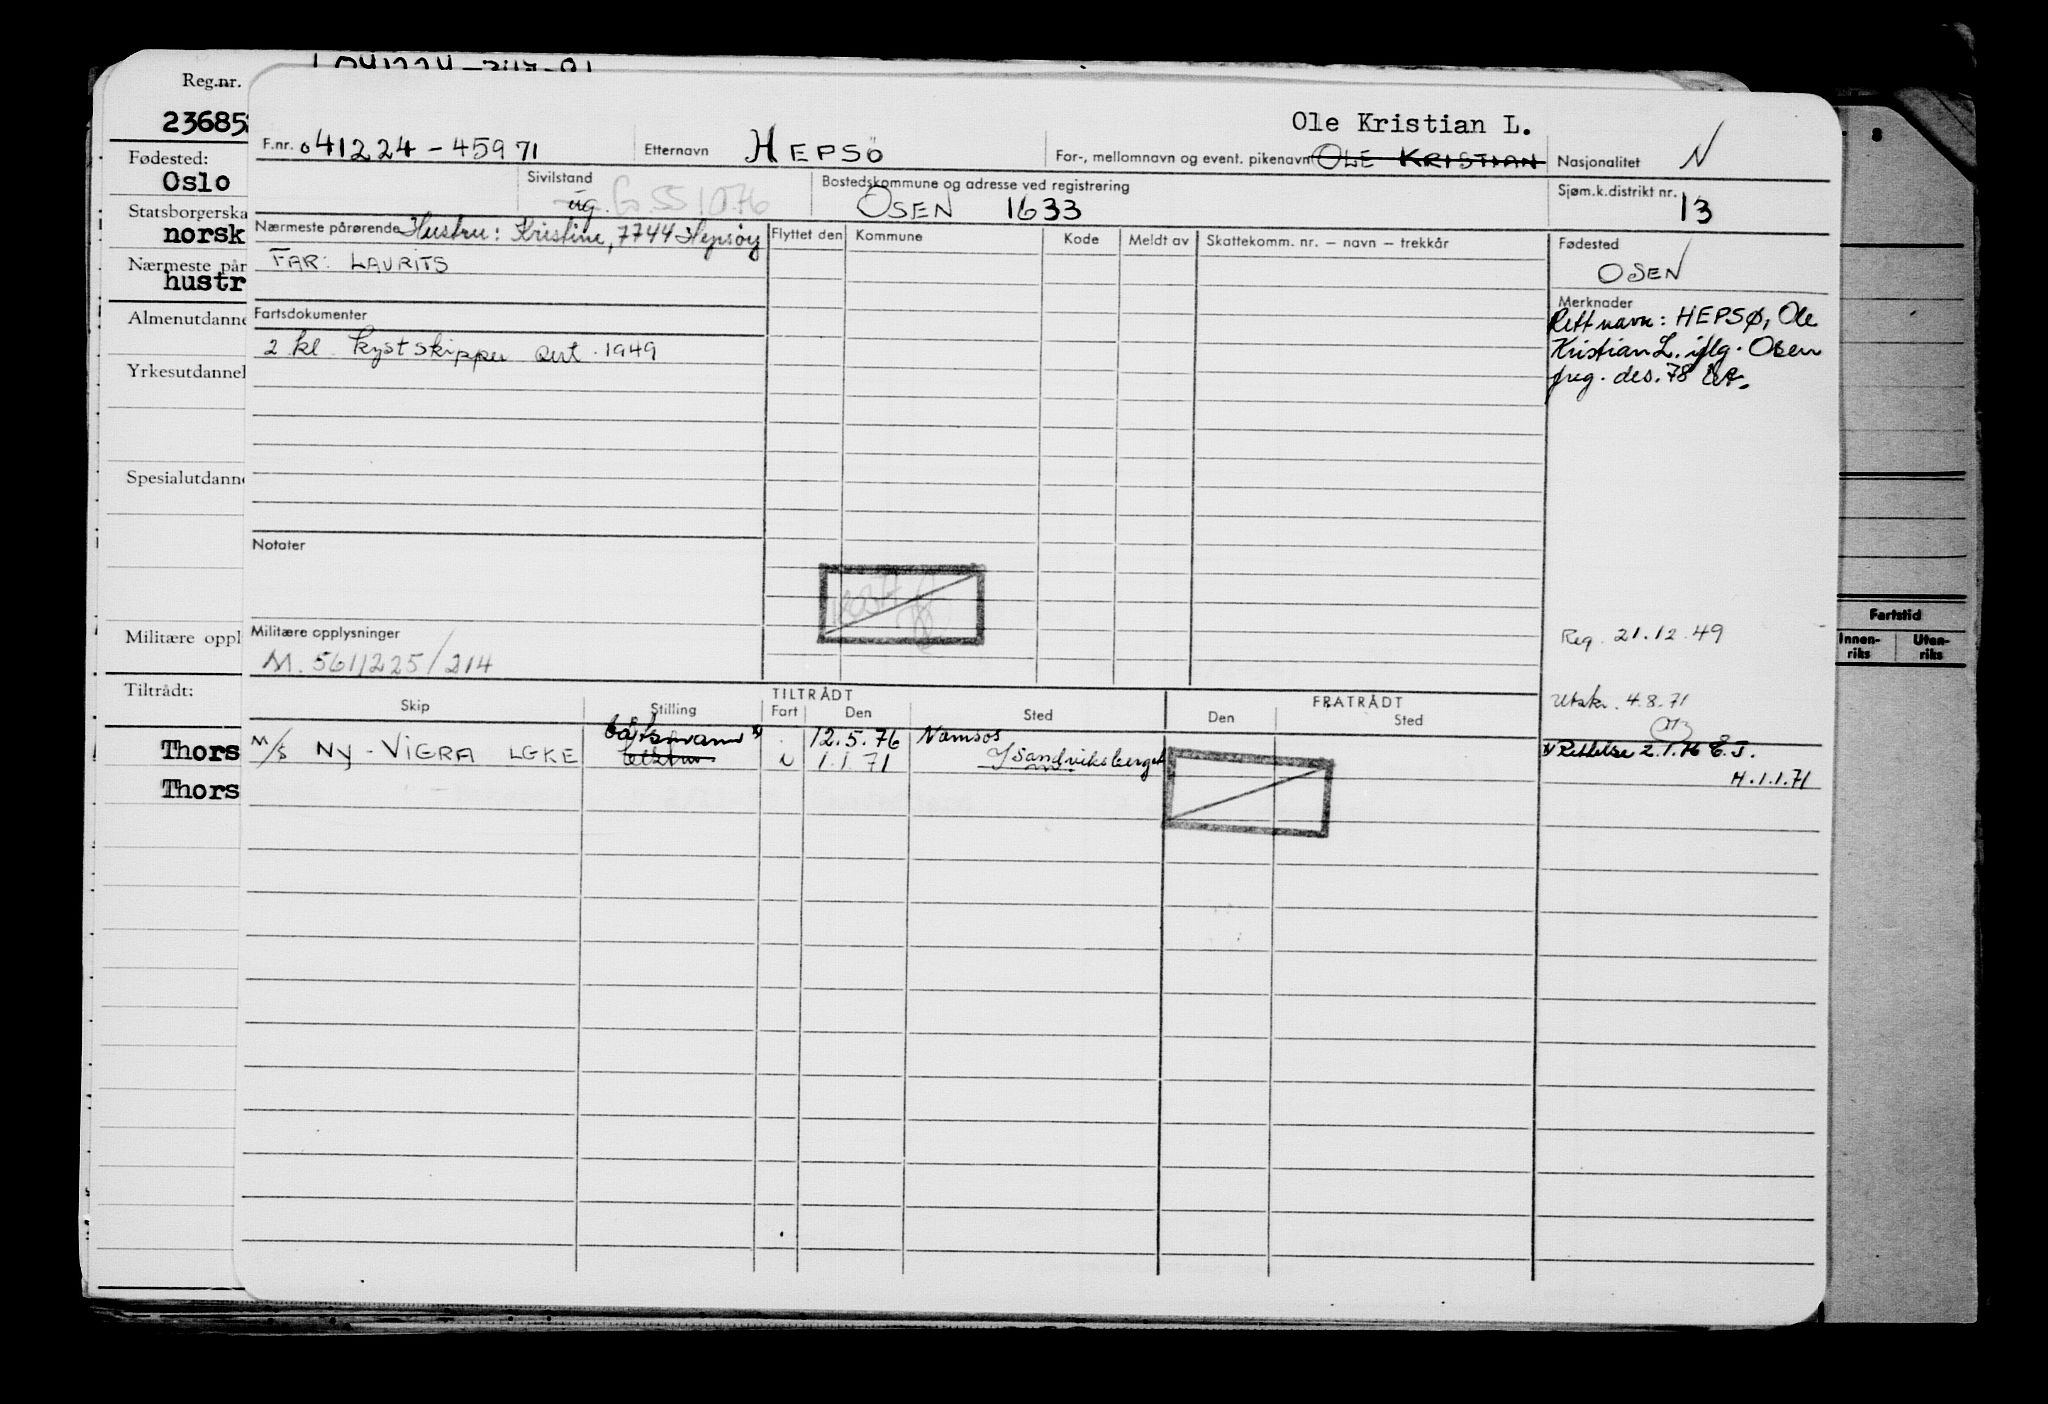 Reg.nr.
23685
Fødested:
Oslo
Statsborgerska
norsk
Nærmeste pår
hustr
Almenutdanne
Yrkesutdannel
Spesialutdanne
Militære oppl
Tiltrådt:
Thors
Thors
Ole Kristian L.
F.nr. 041224-45971 Etternavn HEPSÖ For-, mellomnavn og event. pikenavn OLE KRISTIAN Nasjonalitet N
Sivilstand ug. G. 551076 Bostedskommune og adresse ved registrering OSEN 1633 Sjøm.k.distrikt nr. 13
Nærmeste pårørende Hustru: Kristine, 7744 Hepsøy Flyttet den Kommune Kode Meldt av Skattekomm. nr. – navn – trekkår Fødested
FAR: LAURITS OSEN
Merknader
Rett navn: HEPSØ, Ole
Kristian L. iflg. Osen
freg. des. 78
Fartsdokumenter
2 kl kystskipper sert. 1949
Notater
Militære opplysninger
M. 561/225/214
Reg. 21.12.49
Utskr. 4.8.71
TILTRÅDT FRATRÅDT
Skip Stilling Fart Den Sted Den Sted
båtsmann x) 12.5.76 Namsos
M/S NY-VIGRA LGKE N 1.1.71 I/Sandviksberget
x) Rettelse 2.1.76 E.J.
M.1.1.71
8
Fartstid
Innen-
riks
Uten-
riks